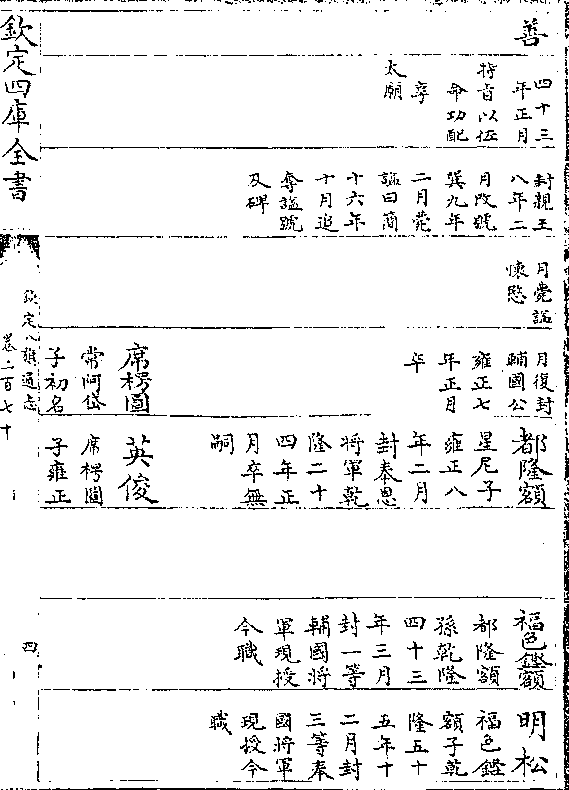 善
四十三
年正月
特旨以佐
命功配
享
太廟
封親王
八年二
月改號
巽九年
二月薨
諡曰簡
十六年
十月追
奪諡號
及碑
月薨諡
懷愍
月復封
輔國公
雍正七
年正月
卒
席楞圖
常阿岱
子初名
都隆額
星尼子
雍正八
年二月
封奉恩
將軍乾
隆二十
四年正
月卒無
嗣
英俊
席楞圖
子雍正
福色鏗額
都隆額
孫乾隆
四十三
年三月
封一等
輔國將
軍現授
今職
明松
福色鏗
額子乾
隆五十
五年十
二月封
三等奉
國將軍
現授今
職
欽定四庫全書
欽定八旗通志
卷二百七十
四